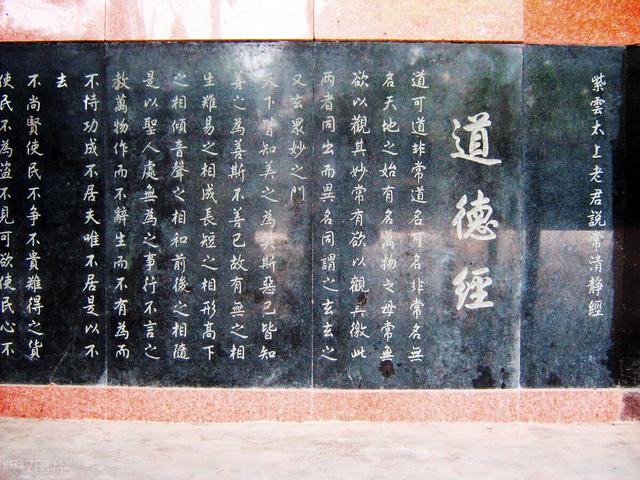 紫雲太上老君説常清靜經
道德經
道可道非常道名可名非常名無
名天地之始有名萬物之母常無
欲以觀其妙常有欲以觀其徼此
两者同出而異名同謂之玄玄之
又玄眾妙之门
天下皆知美之為美斯惡已皆知
善之為善斯不善已故有無之相
生難易之相成長短之相形髙下
之相傾音聲之相和前後之相隨
是以聖人處無為之事行不言之
教萬物作而不辭生而不有為而
不恃功成不居夫唯不居是以不
去
不尚賢使民不争不貴難得之貨
使民不為盗不見可欲使民心不